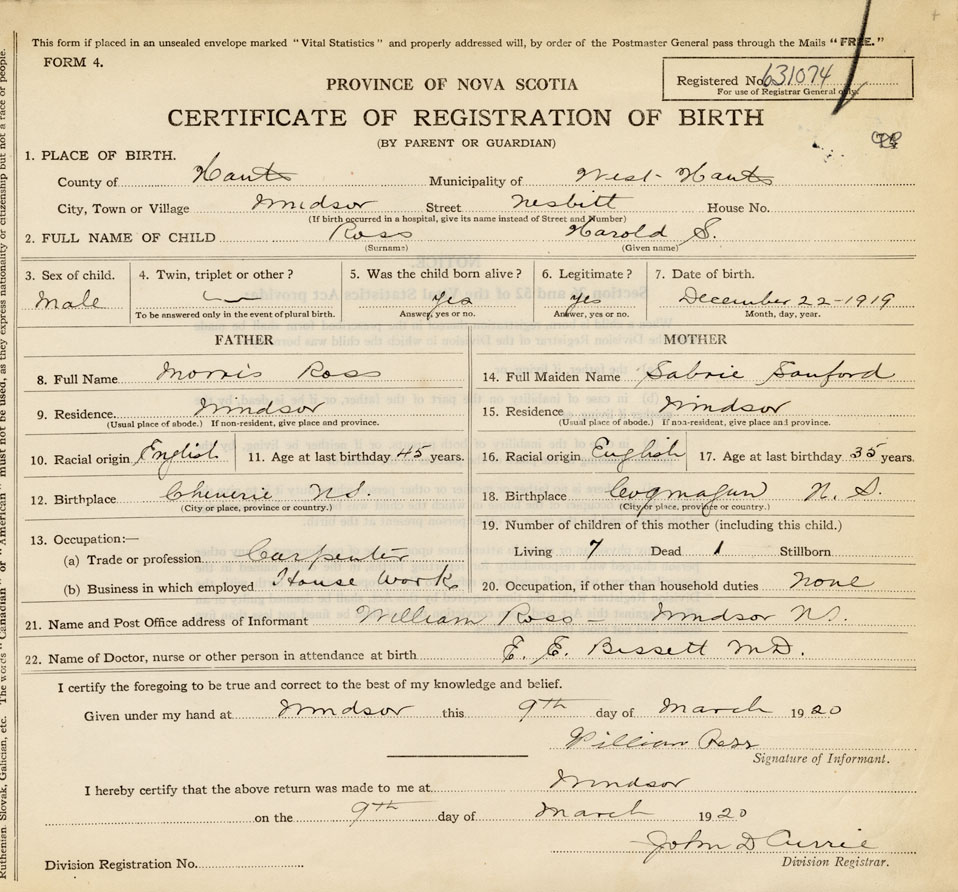 This form if placed in an unsealed envelope marked "Vital Statistics" and properly addressed will, by order of the Postmaster General pass through the Mails "FREE."
FORM 4.
Registered No. 631074
For use of Registrar General only.
PROVINCE OF NOVA SCOTIA
CERTIFICATE OF REGISTRATION OF BIRTH
(BY PARENT OR GUARDIAN)
1. PLACE OF BIRTH.
County of Hants Municipality of West Hants
City, Town or Village Windsor Street Nesbitt House No.
(If birth occurred in a hospital, give its name instead of Street and Number)
2. FULL NAME OF CHILD Ross Harold S.
(Surname) (Given name)
3. Sex of child. 4. Twin, triplet or other? 5. Was the child born alive? 6. Legitimate? 7. Date of birth.
Male Yes Yes December 22-1919
To be answered only in the event of plural birth. Answer, yes or no. Answer, yes or no. Month, day, year.
FATHER MOTHER
8. Full Name Morris Ross 14. Full Maiden Name Sabrie Sanford
9. Residence Windsor 15. Residence Windsor
(Usual place of abode.) If non-resident, give place and province. (Usual place of abode.) If non-resident, give place and province.
10. Racial origin English 11. Age at last birthday 45 years. 16. Racial origin English 17. Age at last birthday 35 years.
12. Birthplace Cheverie N.S. 18. Birthplace Cogmagun N. S.
(City or place, province or country.) (City or place, province or country.)
13. Occupation:— 19. Number of children of this mother (including this child.)
(a) Trade or profession Carpenter Living 7 Dead 1 Stillborn
(b) Business in which employed House Work 20. Occupation, if other than household duties None
21. Name and Post Office address of Informant William Ross - Windsor N.S.
22. Name of Doctor, nurse or other person in attendance at birth E. E. Bissett M.D.
I certify the foregoing to be true and correct to the best of my knowledge and belief.
Given under my hand at Windsor this 9th day of March 1920
William Ross
Signature of Informant.
I hereby certify that the above return was made to me at Windsor
on the 9th day of March 1920
John D Currie
Division Registrar.
Division Registration No.
Ruthenian, Slovak, Galician, etc. The words "Canadian" or "American" must not be used, as they express nationality or citizenship but not a race or people.